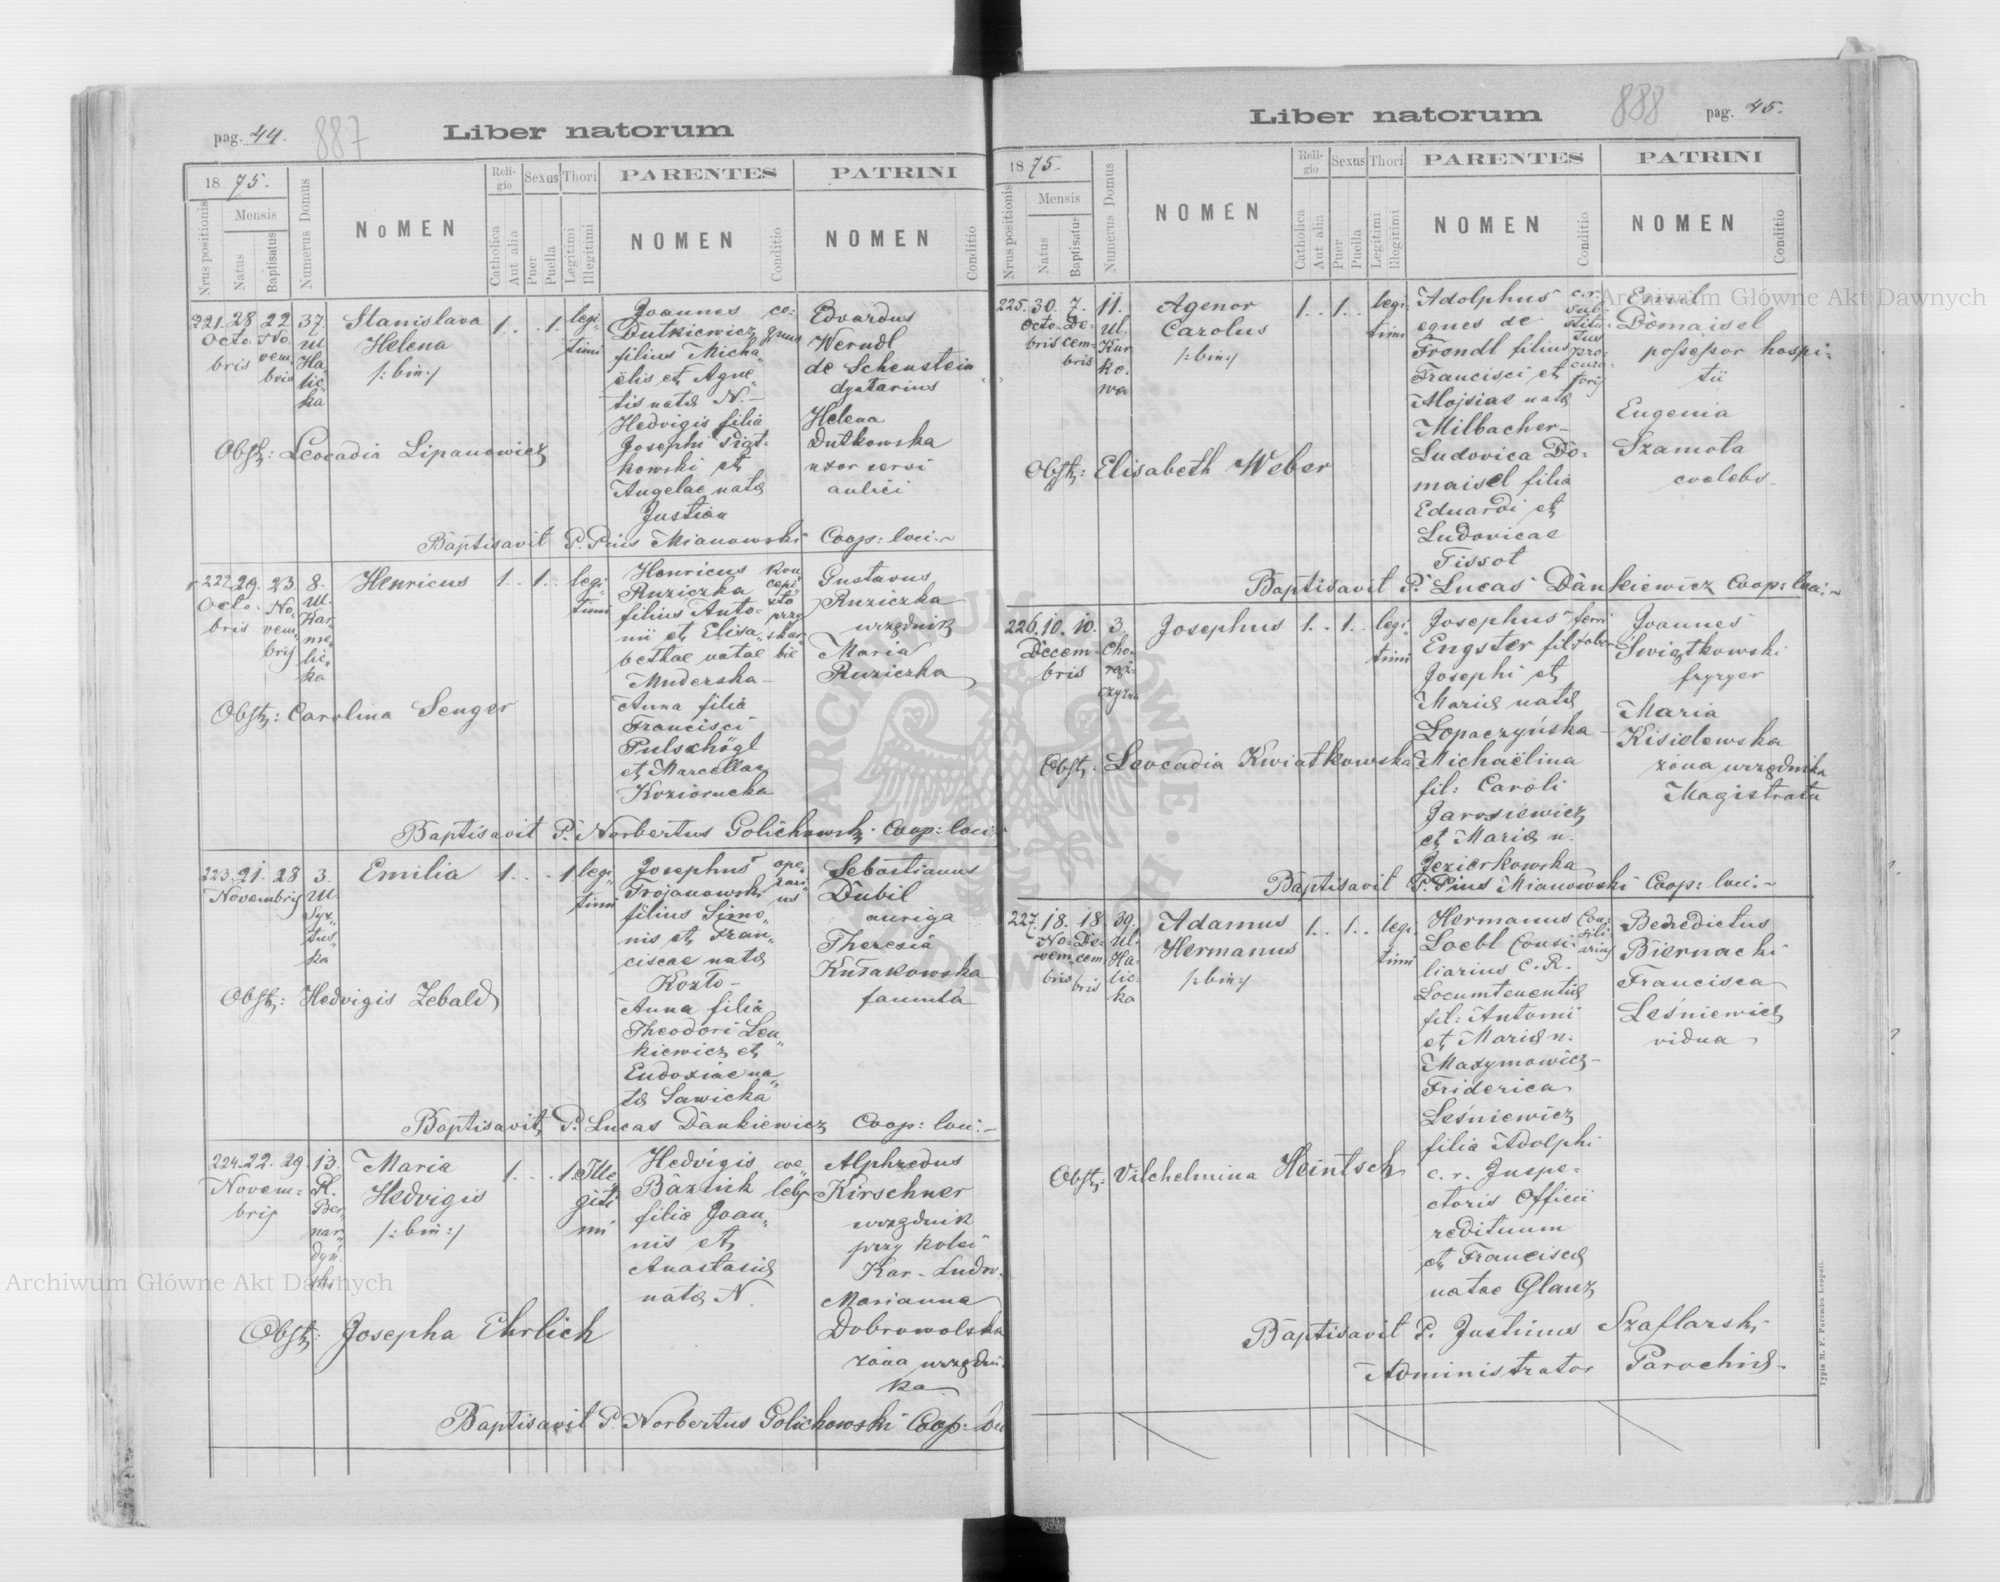 pag. 44. 887
Liber natorum
1875.
Nrus positionis
Mensis
Natus
Baptisatus
Numerus Domus
NOMEN
Religio
Catholica
Aut alia
Sexus
Puer
Puella
Thori
Legitimi
Illegitimi
PARENTES
NOMEN
Conditio
PATRINI
NOMEN
Conditio
221. 28 Octobris
22 Novembris
37. ul Halicka
Stanislava
Helena
/: bin :/
1. . . 1. legitimi
Joannes
Dutkiewicz
filius Micha„
ëlis et Agne„
tis natæ N. –
Hedvigis filia
Josephi Piąt„
kowski et
Angelae natæ
Justian
Edvardus
Werndl
de Schenstein
dyetarius
Helena
Dutkowska
uxor servi
aulici
Obst: Leocadia Lipanowicz
Baptisavit P. Pius Mianowski Coop: loci. ~
222. 29. Octobris
23. Novembris
8. ul. Karmelicka
Henricus
1. . 1. . legitimi
Henricus
Ruziczka
filius Anto„
nii et Elisa„
bethae natae
Muderska –
Anna filia
Francisci
Pulschögl
et Marcellae
Koziorucka
Gustavus
Ruziczka
urzędnik
Maria
Ruziczka
Obst: Carolina Senger
Baptisavit P. Norbertus Golichowski Coop: loci. ~
223. 21. 28 Novembris
3. ul. Syxtuska
Emilia
1. . . 1 legitimi
Josephus
Trojanowski
operarius
filius Simo„
nis et Fran„
ciscae natæ
Kozto –
Anna filia
Theodori Len„
kiewicz et
Eudoxiae na„
tæ Sawicka
Sebastianus
Dubil
auriga
Theresia
Kułakowska
famula
Obst: Hedvigis Zebald
Baptisavit P. Lucas Dankiewicz Coop: loci. ~
224. 22. 29. Novembris
13. Pl. Bernardyński
Maria
Hedvigis
/: bin :/
1. . . 1 Illegitimi
Hedvigis coelebs
Bäznik
filia Joan„
nis et
Anastasiæ
natæ N.
Alphredus
Kirschner
urzędnik
przy kolei
Kar – Ludw.
Marianna
Dobrowolska
żona urzędni„
ka
Obst: Josepha Ehrlich
Baptisavit P. Norbertus Golichowski Coop: loci
Liber natorum
888 pag. 45.
1875.
Nrus positionis
Mensis
Natus
Baptisatus
Numerus Domus
NOMEN
Religio
Catholica
Aut alia
Sexus
Puer
Puella
Thori
Legitimi
Illegitimi
PARENTES
NOMEN
Conditio
PATRINI
NOMEN
Conditio
225. 30. Octobris
7. Decembris
11. Ul. Kurkowa
Agenor
Carolus
/: bin :/
1. . 1. . legitimi
Adolphus
eques de
Frendl filius
Francisci et
Aloysiae natæ
Milbacher –
Ludovica Do„
maisel filia
Eduardi et
Ludovicae
Tissot
c. r. substitutus procuratoris
Emil
Domaisel
possessor hospi„
tii
Eugenia
Szamota
coelebs
Obst: Elisabeth Weber
Baptisavit P. Lucas Dankiewicz Coop: loci. ~
226. 10. 10. Decembris
3. Chorążczyzna
Josephus
1. . 1. . legitimi
Josephus ferri
Engster fil: faber
Josephi et
Mariæ natæ
Łopaczyńska –
Michaëlina
fil: Caroli
Jarosiewicz
et Mariæ n.
Jezierkowska
Joannes
Świątkowski
fryzyer
Maria
Kisielewska
żona urzędnika
Magistratu
Obst: Leocadia Kwiatkowska
Baptisavit P. Pius Mianowski Coop: loci. ~
227. 18. Novembris
18 Decembris
39. Ul. Halicka
Adamus
Hermanus
/: bin :/
1. . 1. . legitimi
Hermanus
Loebl Consi„
liarius C. R.
Locumtenentiæ
fil: Antonii
et Mariæ n.
Maxymowicz –
Friderica
Leśniewicz
filia Adolphi
c. r. Inspe„
ctoris Officii
redituum
et Franciscæ
natae Glanz
Consiliarius
Benedictus
Biernacki
Francisca
Leśniewicz
vidua
Obst: Vilchelmina Heintsch
Baptisavit P. Justinus Szaflarski
Administrator Parochiæ –
Typis M. F. Poremba Leopoli.
Archiwum Główne Akt Dawnych
Archiwum Główne Akt Dawnych
ARCHIWUM GŁÓWNE AKT DAWNYCH